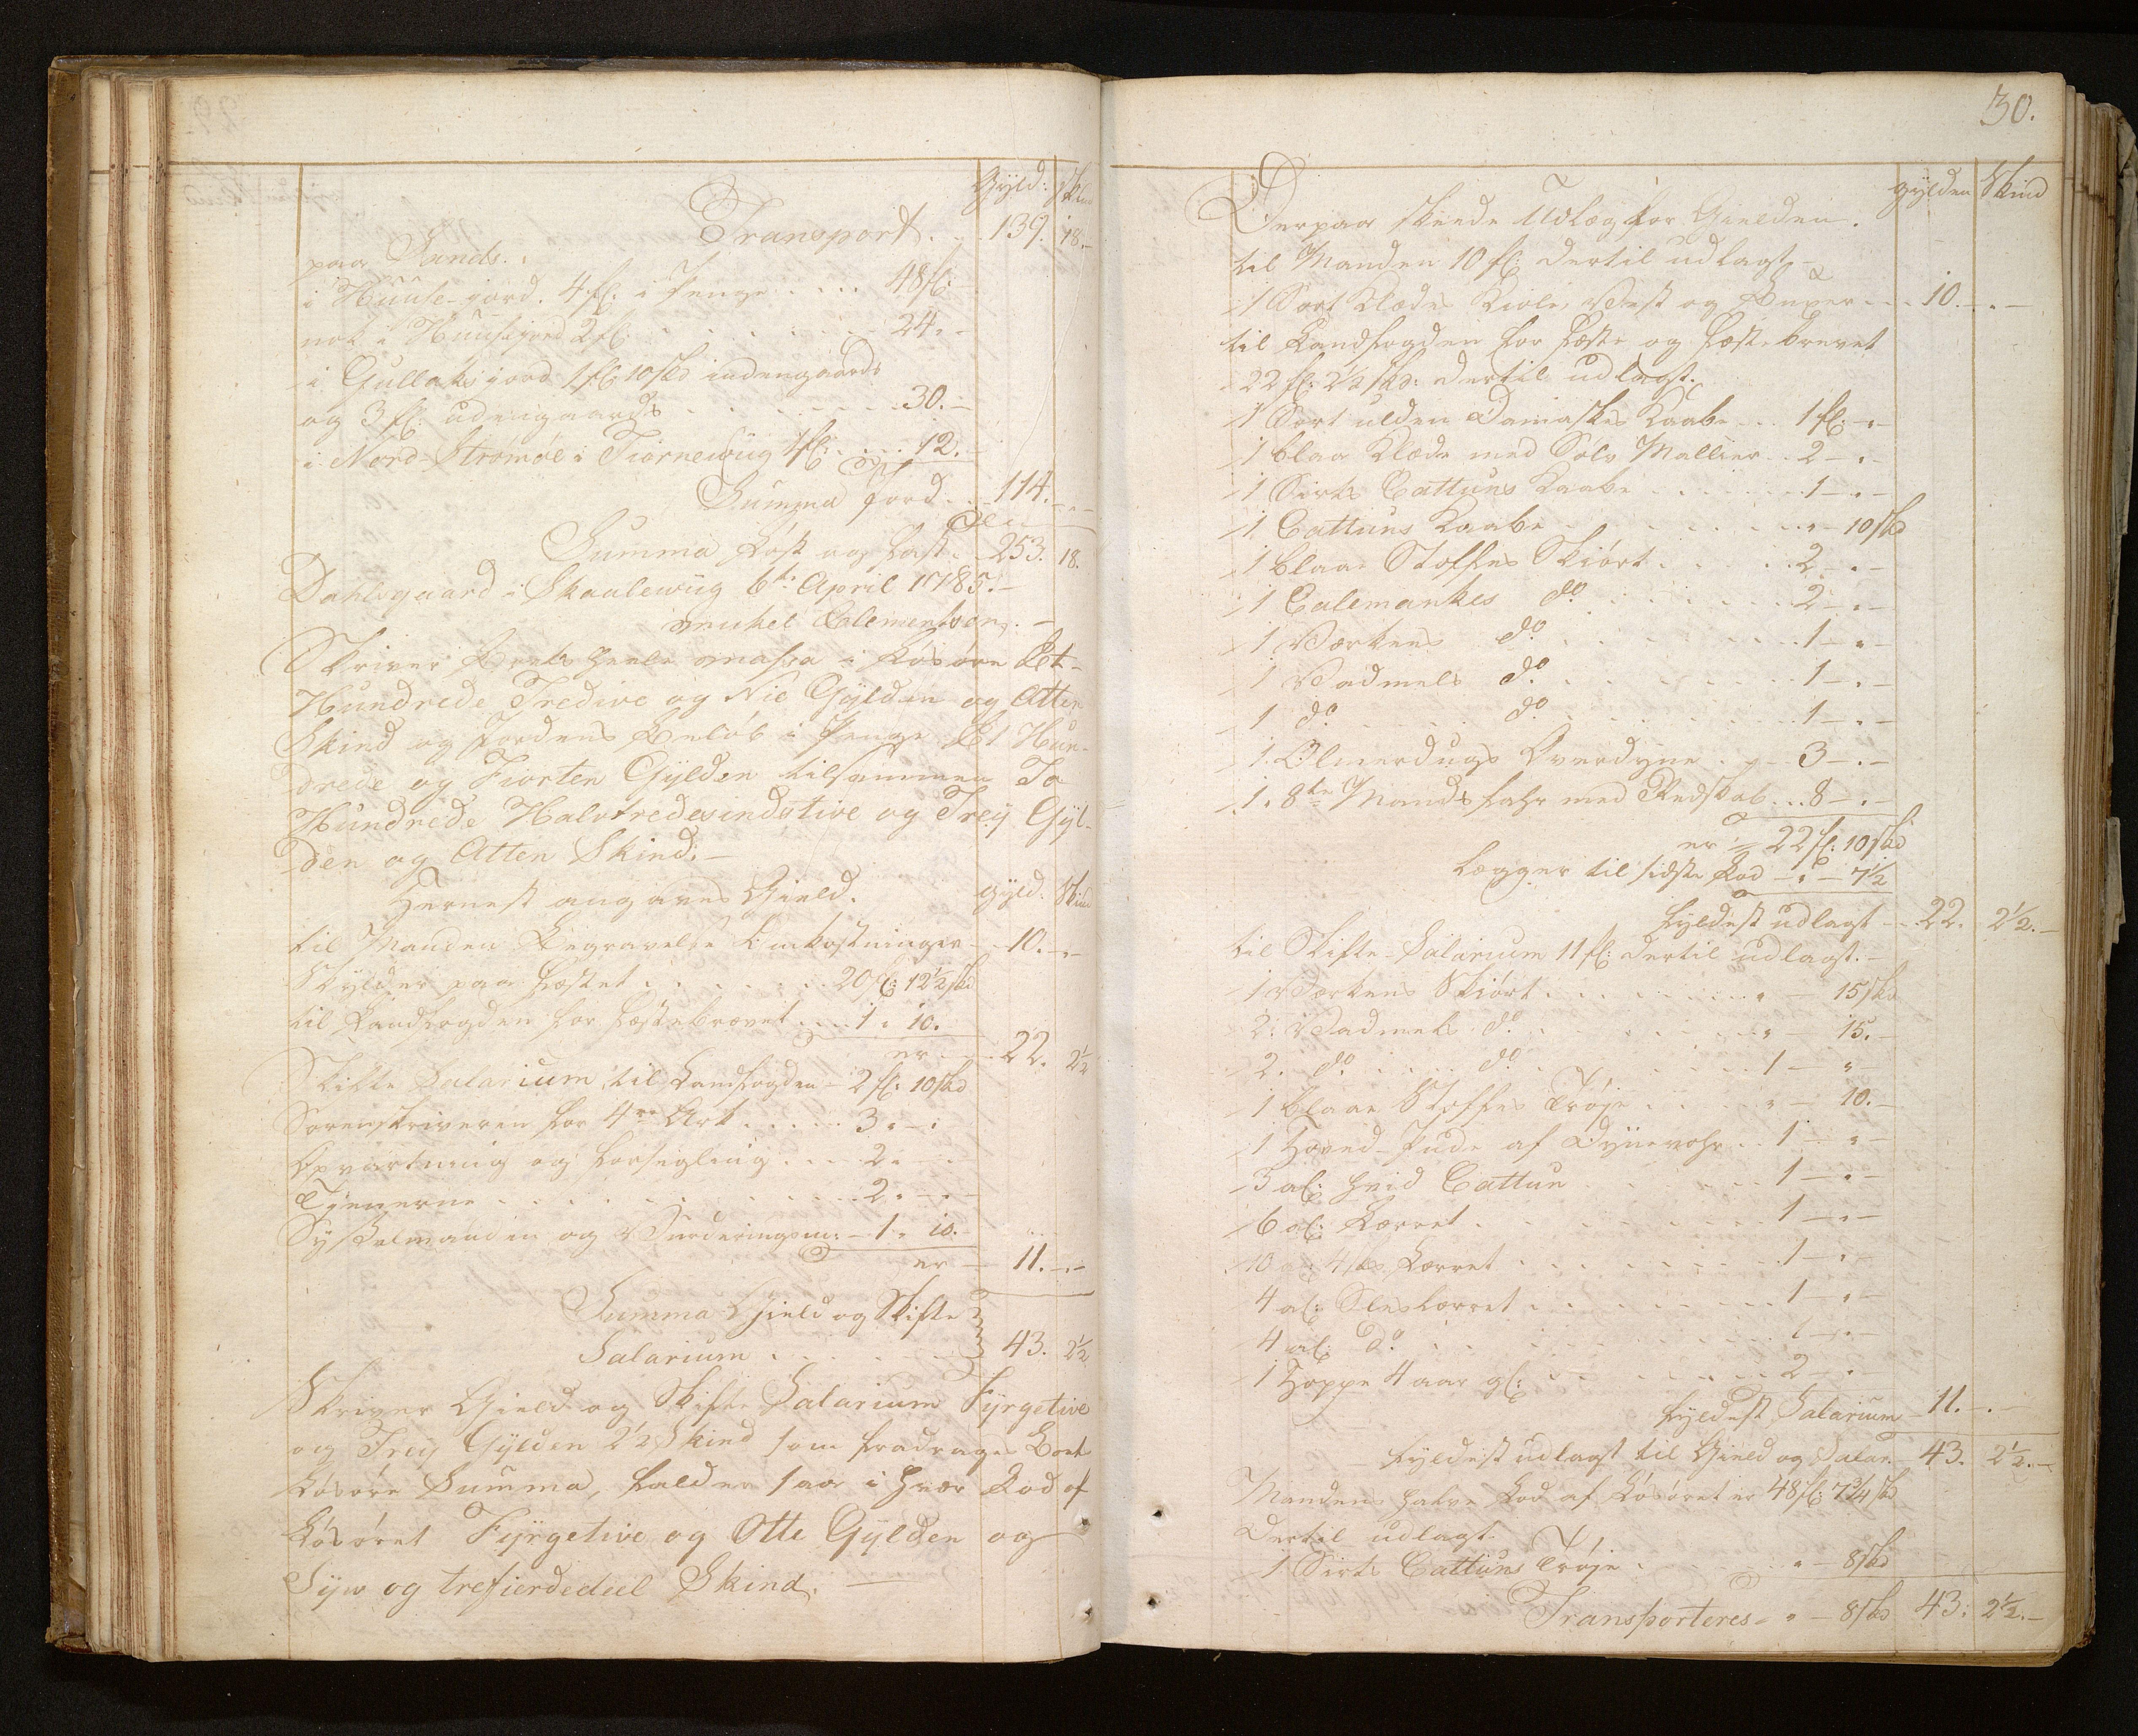 Gyld: Skind
Transport. . 139. 18.
paa Sands. :
i Huuse-jord. 4 fl: i Penge . . . . 48 fl:
nok i Huusejord 2 fl: . . . . . 24. -
i Gullaks jord 1 fl: 10 skd indengaards
og 3 fl: udengaards . . . . . . . 30. -
i Nord Strømøe i Tiørnewiig 1 fl: . . . . 12. -
Summa jord . . 114. -
Summa Løst og fast . 253. 18.
Dahlsgaard i Skaalewiig 6te April 1785. -
Mickel Clementsen. -
Skriver Boets heele Massa i Løsøre Et
Hundrede Tredive og Nie Gylden og Atten
Skind og Jordens Beløb i Penge Et Hun-
-drede og Fiorten Gylden tilsammen To
Hundrede Halvtredesindstive og Trey Gyl-
-den og Atten Skind. -
Hernest angaves Gield. Gyld: Skind
til Manden Begravelse Omkostninger - 10. -
Skylder paa Fæstet . . . . . . . 20 fl: 12½ skd
til Landfogden for Fæstebrevet . . . . 1. 10.
er . . . 22. 2½
Skifte Salarium til Landfogden - 2 fl: 10 skd
Sorenskriveren for 4re Ark . . . . . 3. -
Opvartning og Forsegling . . . . 2. -
Tjenerne . . . . . . . . . . 2. -
Sysselmanden og Vurderingsm: - 1. 10. -
er - 11. -
Summa Gield og Skifte
Salarium . . . . . . 43. 2½
Skriver Gield og Skifte Salarium Fyrgetive
og Trey Gylden 2½ Skind som fradrages Boets
Løsøre Summa, falder saa i hver Lod af
Løsøret Fyrgetive og Otte Gylden og
Syw og trefierdedeel Skind. -
30.
gylden Skind
Derpaa skeede Udlæg for Gielden.
til Manden 10 fl: dertil udlagt -
1 Sort Klædes Kiole, Vest og Buxer . . . 10. -
til Landfogden for Fæste og Fæstebrevet
22 fl: 2½ skd: dertil udlagt.
1 Sort ulden Damaskes Kaabe . . . 1 fl: -
1 blaa Klæde med Sølv Mallier . . 2 - -
1 Sirts Cattuns Kaabe . . . . . . . 1 - -
1 Cattuns Kaabe . . . . . . . . " - 10 skd
1 blaae Stoffes Skiørt . . . . . 2 - -
1 Calemankes do . . . . . . 2 - -
1 Værkens do . . . . . . . 1 - -
1 Vadmels do . . . . . . . . 1 - -
1 do . . . . . do . . . . . . . . 1 - -
1 Olmerdugs Overdyne . . - 3 - -
1. 8te Mands fahr med Redskab . . . 8 - -
er = 22 fl: 10 skd
lægger til sidste Lod - " - 7½
fyldest udlagt - - 22. 2½. -
til Skifte-Salarium 11 fl: dertil udlagt. -
1 Værkens Skiørt . . . . . . . " - 15 skd
2: Vadmels do . . . . . . . " - 15. -
2. do . . . . . do . . . . . . . 1 - " -
1 blaae Stoffes Trøje . . . . " - 10. -
1 Hoved-Pude af Dynevahr . . 1 - " -
3 al: hvid Cattun . . . . . . 1 - " -
6 al: Lærret . . . . . . . . 1 - " -
10 al: Lærret . . . . . . . 1 - " -
4 al: Sleslærret . . . . . . . . 1 - " -
4 al: do . . . . . . . . . . 1 - " -
1 Hoppe 4 aar gl: . . . . . . . 2 - " -
fyldest Salarium - 11. -
fyldest udlagt til Gield og Salar. - 43. 2½. -
Mandens halve Lod af Løsøret er 48 fl: 7¾ skd
Dertil udlagt.
1 Sirts Cattuns Trøje . . . . . . " - 8 skd
Transporteres - " - 8 skd 43: 2½. -